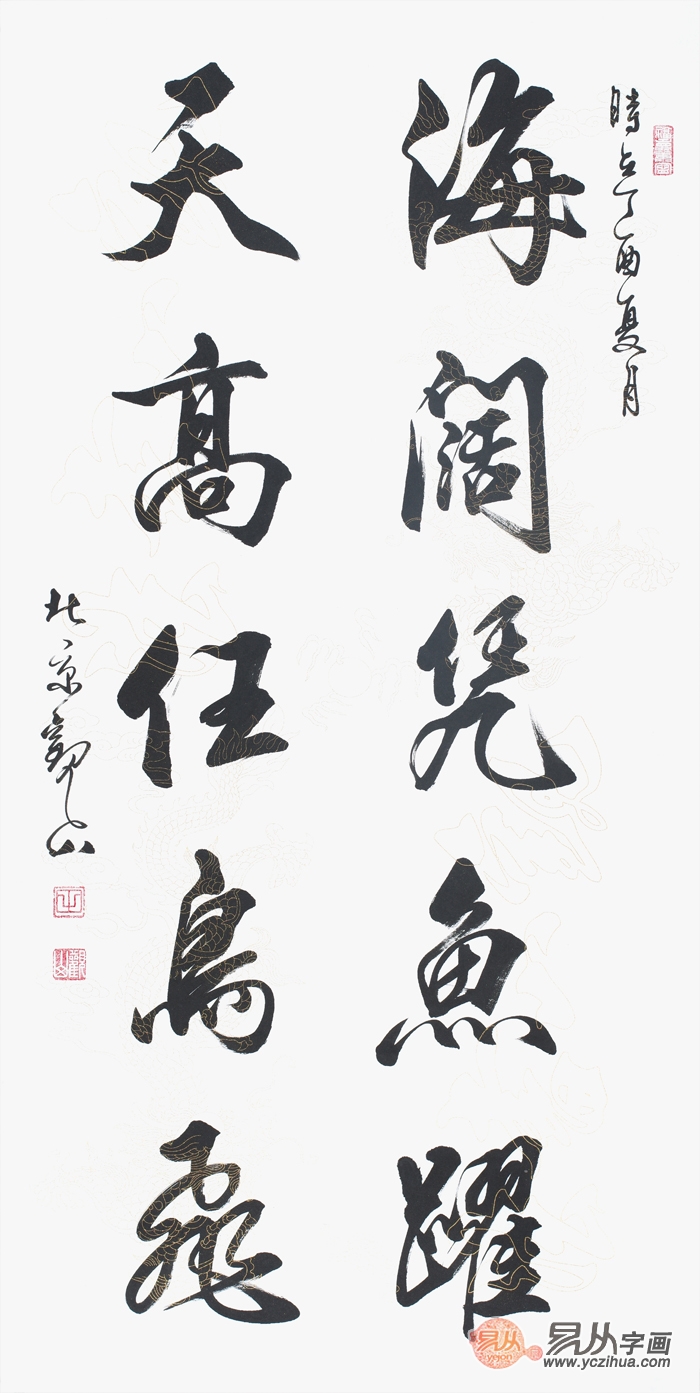 時在丁酉夏月
海阔凭魚躍
天髙任鳥飛
北京觀山
易从
yicon
易从字画
www.yczihua.com